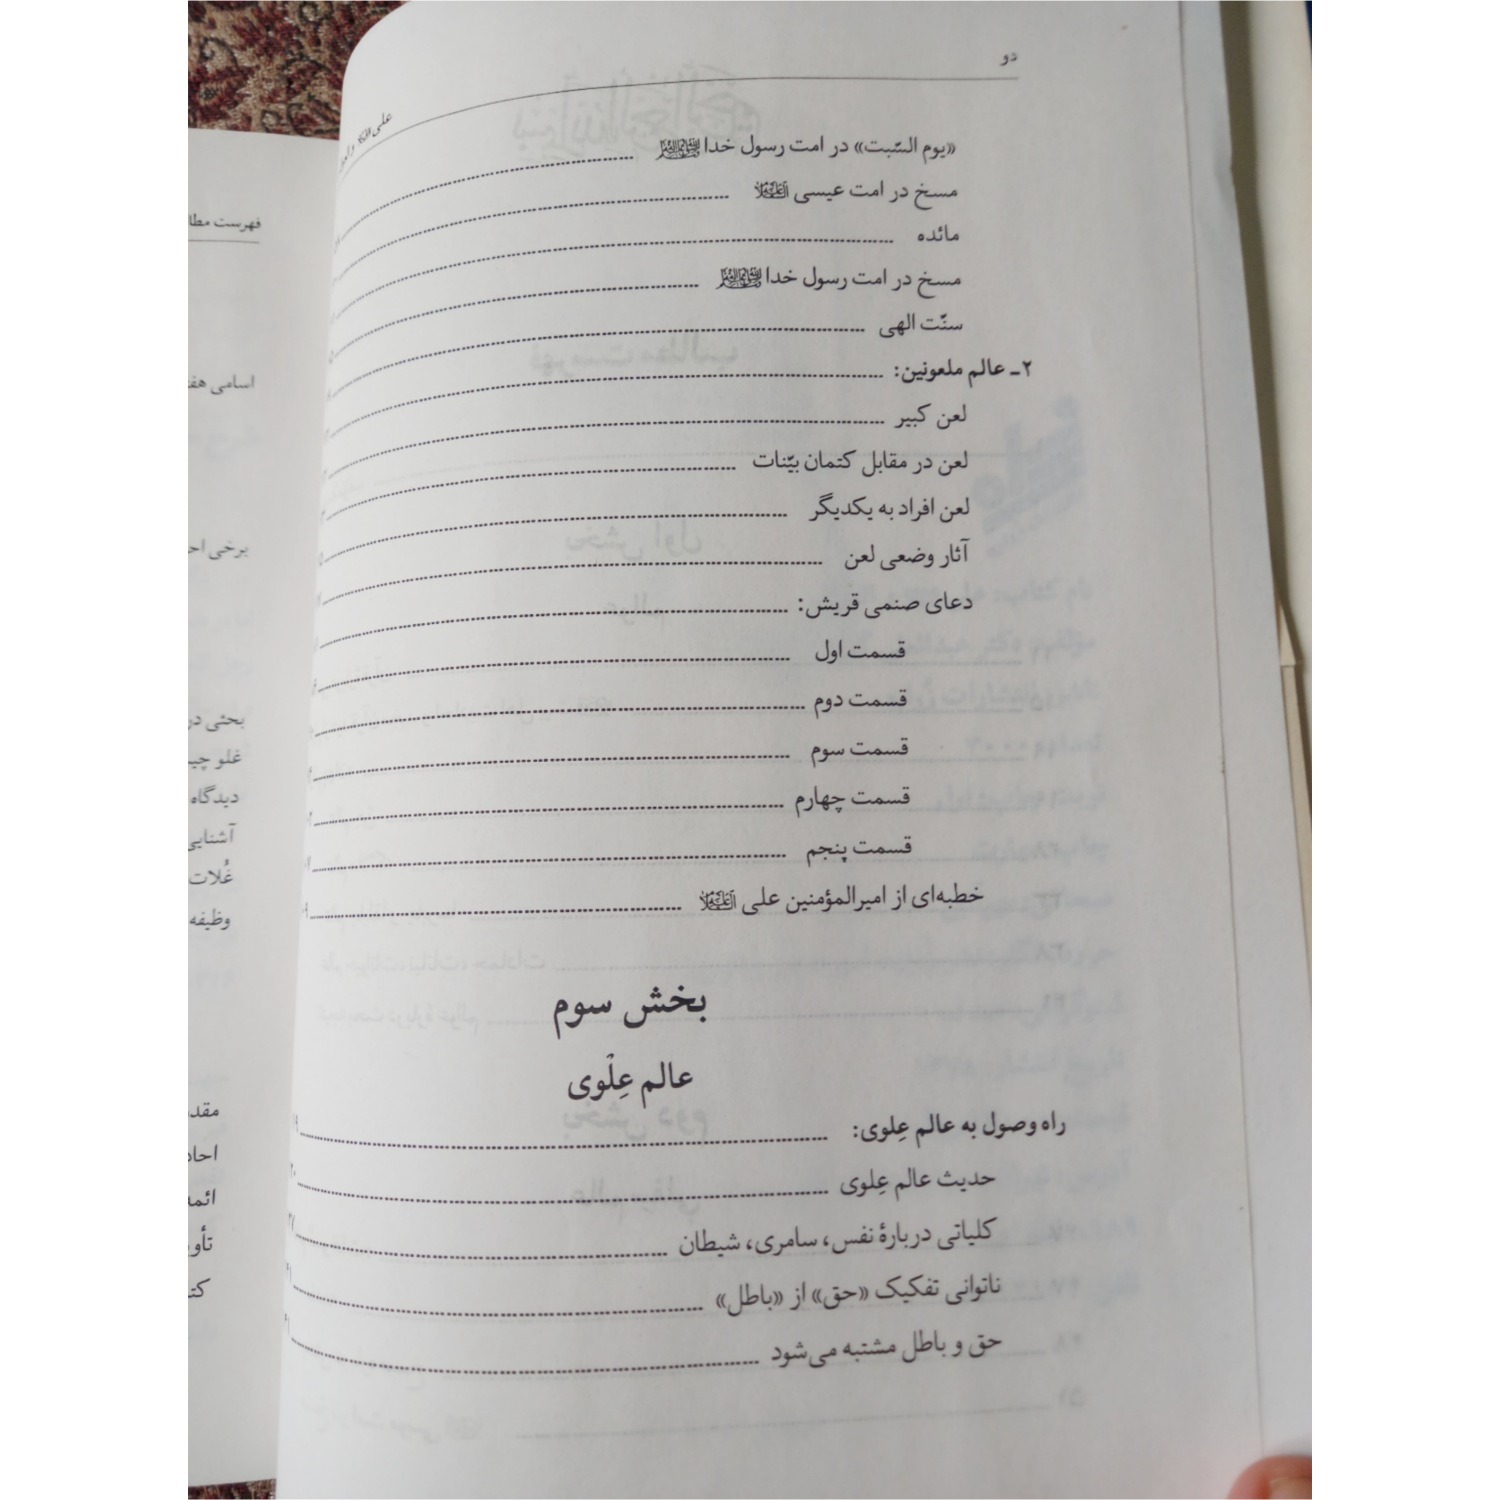 دو
علی علیه‌السلام و
«یوم السّبت» در امت رسول خدا ﷺ
مسخ در امت عیسی علیه‌السلام
مائده
مسخ در امت رسول خدا ﷺ
سنّت الهی
۲ـ عالم ملعونین:
لعن کبیر
لعن در مقابل کتمان بیّنات
لعن افراد به یکدیگر
آثار وضعی لعن
دعای صنمی قریش:
قسمت اول
قسمت دوم
قسمت سوم
قسمت چهارم
قسمت پنجم
خطبه‌ای از امیرالمؤمنین علی علیه‌السلام
بخش سوم
عالم عِلْوی
راه وصول به عالم عِلوی:
حدیث عالم عِلوی
کلیاتی دربارهٔ نفس، سامری، شیطان
ناتوانی تفکیک «حق» از «باطل»
حق و باطل مشتبه می‌شود
فهرست مطا
اسامی هف
برخی اح
بحثی در
غلو چی
دیدگاه
آشنایی
غُلات
وظیفه
مقد
احاد
ائمه
تأو
کت